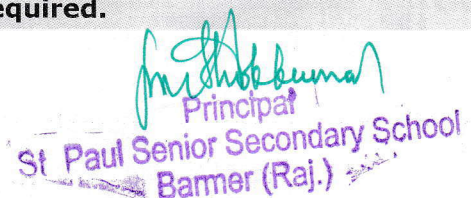 equired.
Principal
St Paul Senior Secondary School
Barmer (Raj.)